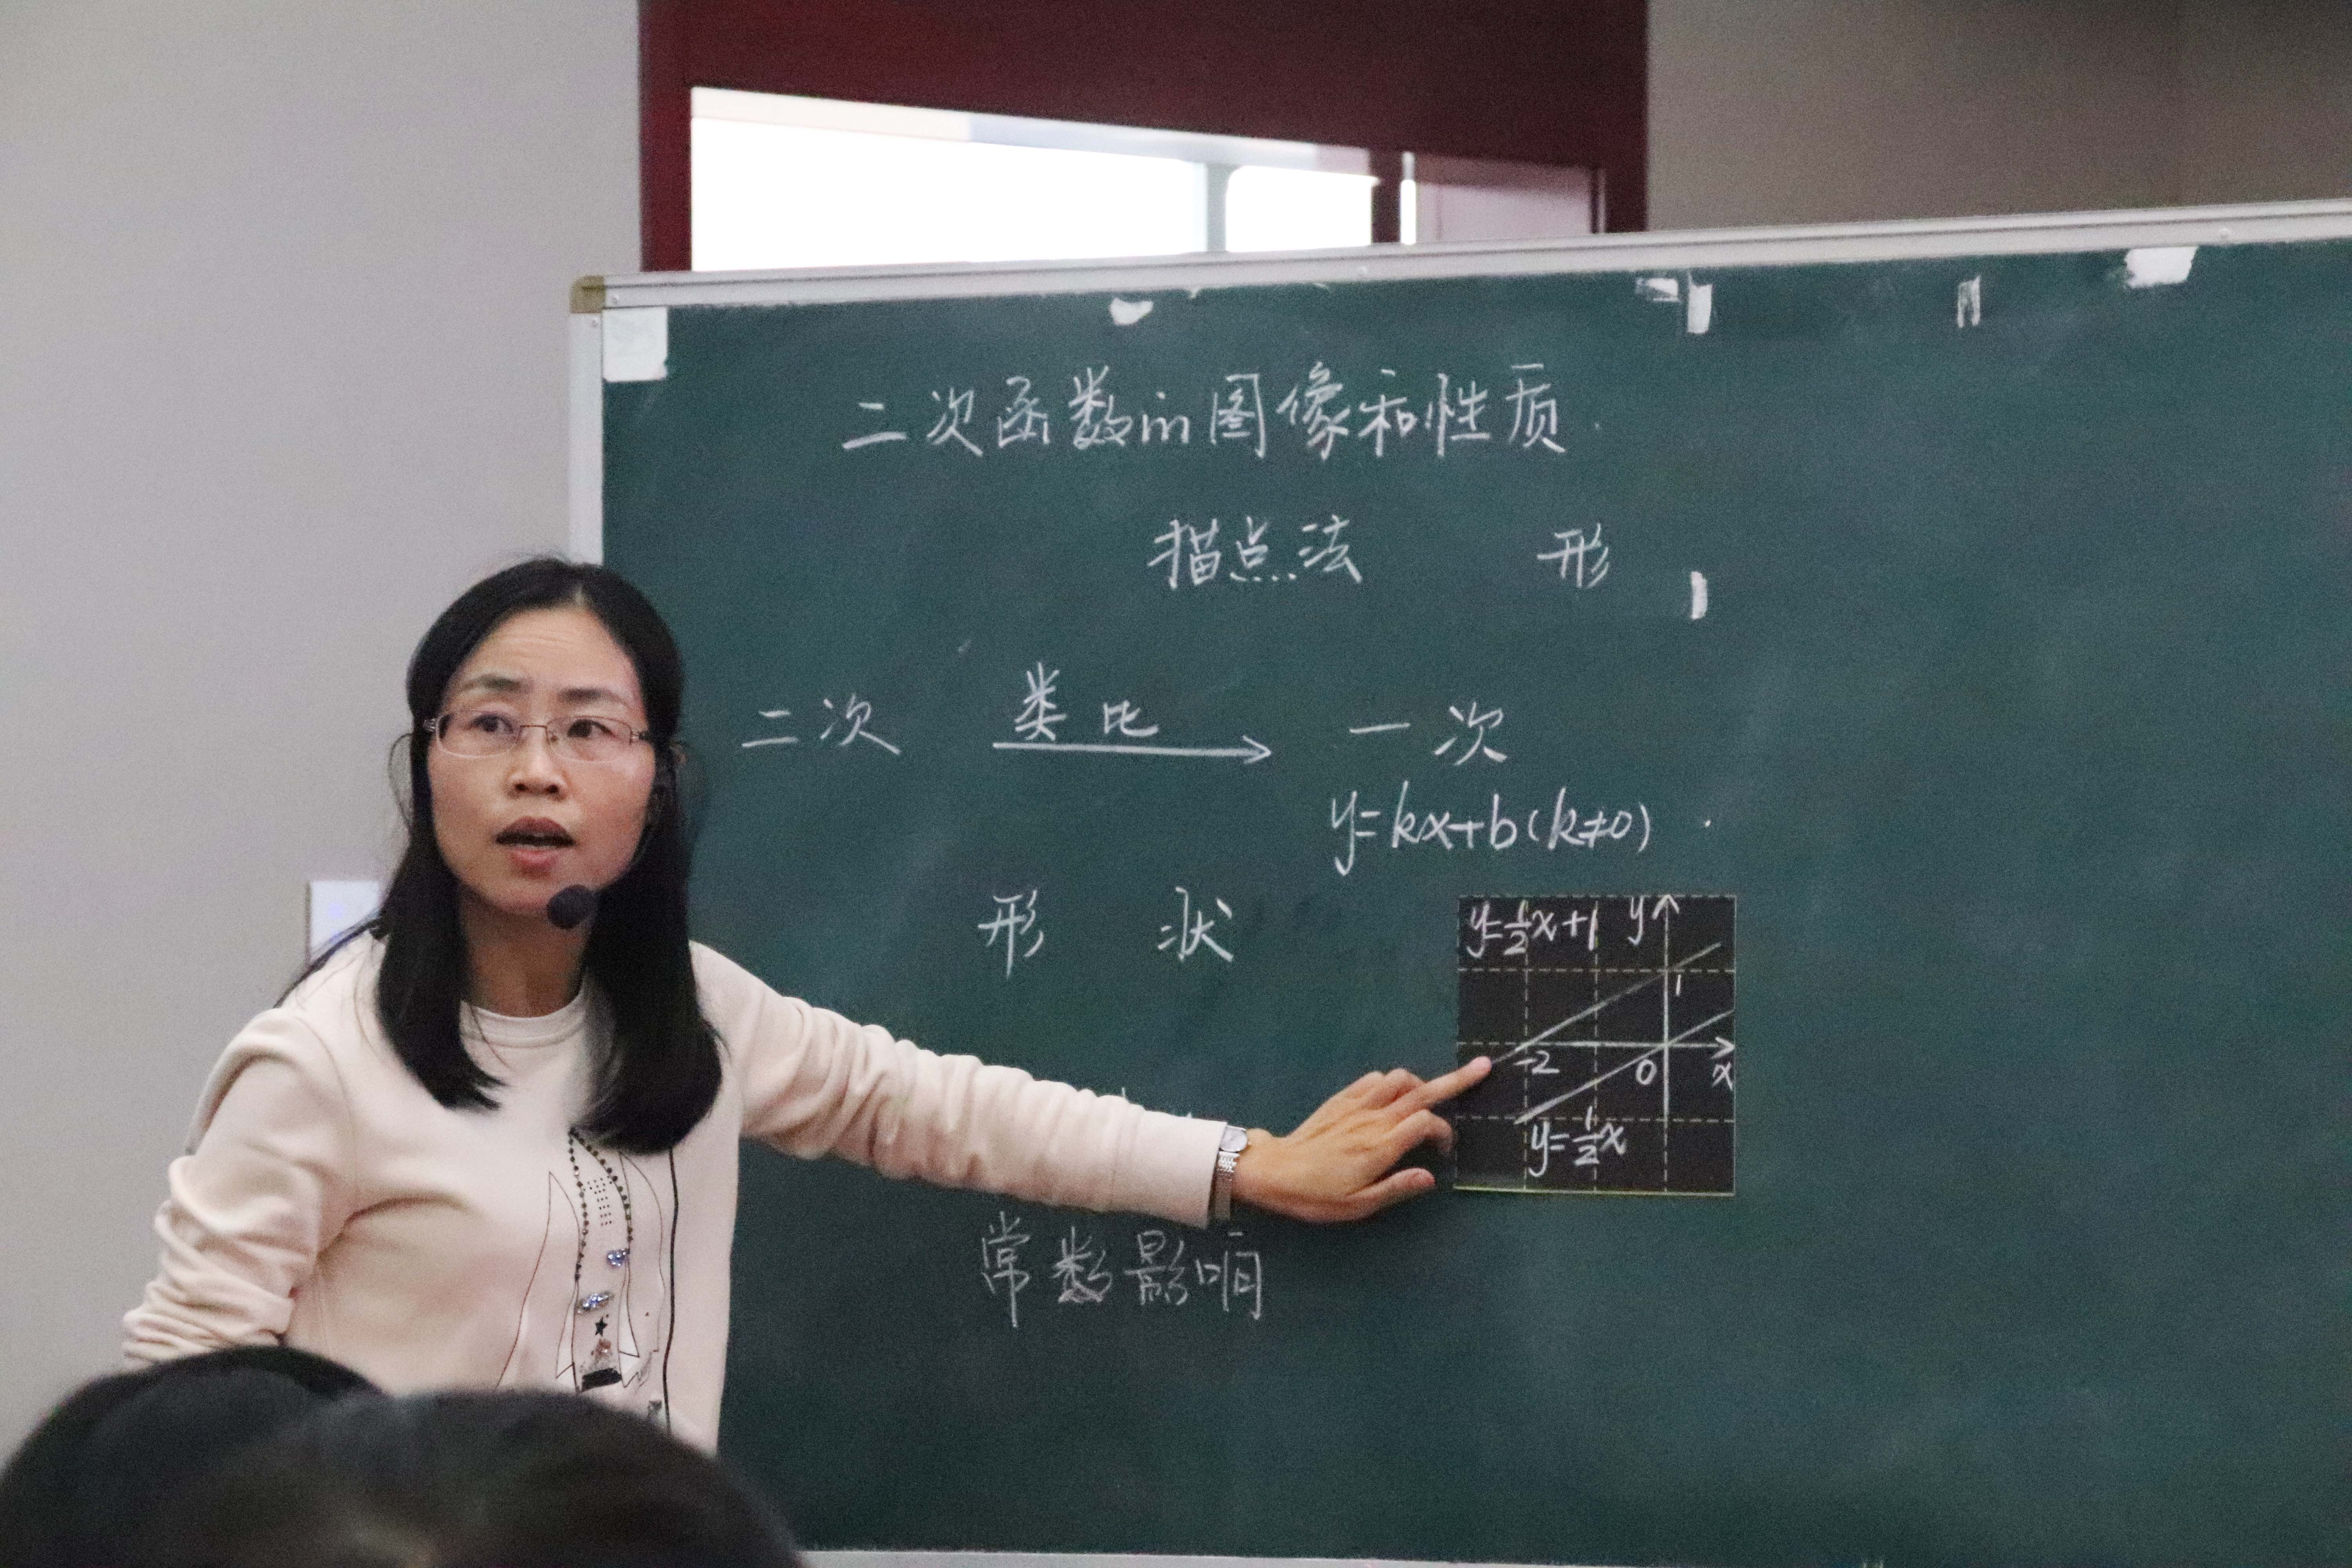 二次函数的图像和性质
描点法 形
二次 类比 一次
y=kx+b(k≠0)
形状
y=½x+1 y
1
-2 0 x
y=½x
常数影响